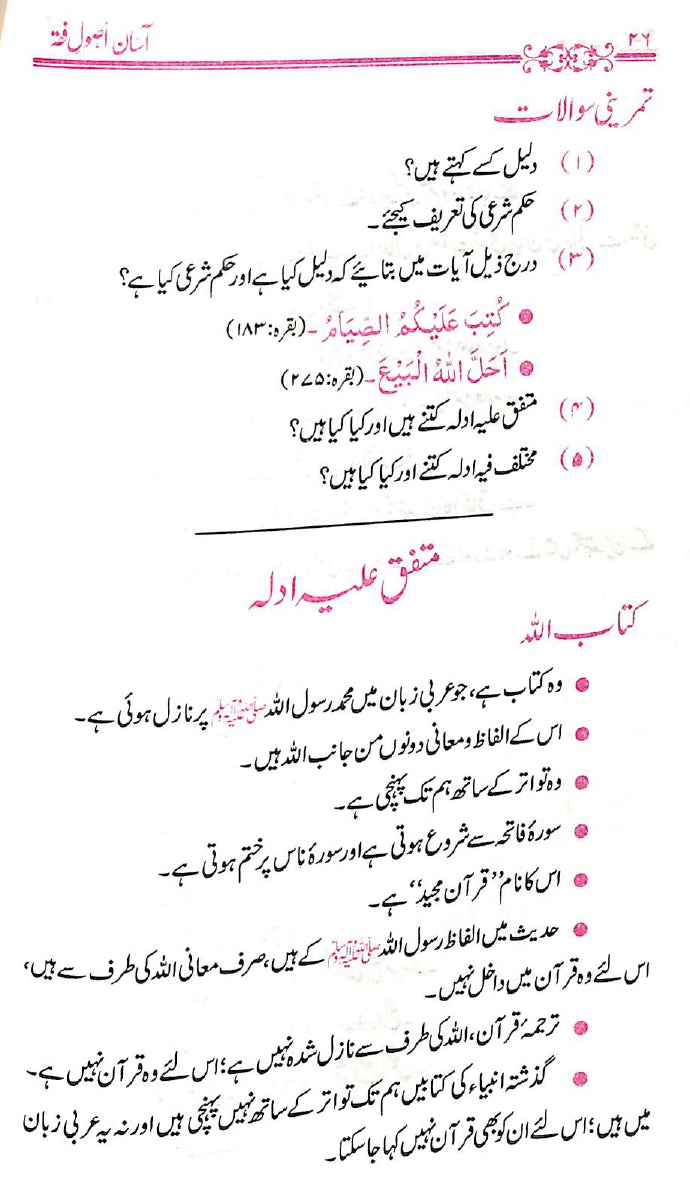 ۲۶ آسان اُصولِ فقہ
تمرینی سوالات
(۱) دلیل کسے کہتے ہیں؟
(۲) حکم شرعی کی تعریف کیجئے۔
(۳) درج ذیل آیات میں بتائیے کہ دلیل کیا ہے اور حکم شرعی کیا ہے؟
● كُتِبَ عَلَيْكُمُ الصِّيَامُ ۔(بقرہ:۱۸۳)
● اَحَلَّ اللهُ الْبَيْعَ ۔(بقرہ:۲۷۵)
(۴) متفق علیہ ادلہ کتنے ہیں اور کیا کیا ہیں؟
(۵) مختلف فیہ ادلہ کتنے اور کیا کیا ہیں؟
متفق علیہ ادلہ
کتاب اللہ
● وہ کتاب ہے، جو عربی زبان میں محمد رسول اللہ ﷺ پر نازل ہوئی ہے۔
● اس کے الفاظ و معانی دونوں من جانب اللہ ہیں۔
● وہ تواتر کے ساتھ ہم تک پہنچی ہے۔
● سورۂ فاتحہ سے شروع ہوتی ہے اور سورۂ ناس پر ختم ہوتی ہے۔
● اس کا نام ’’قرآن مجید‘‘ ہے۔
● حدیث میں الفاظ رسول اللہ ﷺ کے ہیں، صرف معانی اللہ کی طرف سے ہیں،
اس لئے وہ قرآن میں داخل نہیں۔
● ترجمۂ قرآن، اللہ کی طرف سے نازل شدہ نہیں ہے؛ اس لئے وہ قرآن نہیں ہے۔
● گذشتہ انبیاء کی کتابیں ہم تک تواتر کے ساتھ نہیں پہنچی ہیں اور نہ یہ عربی زبان
میں ہیں؛ اس لئے ان کو بھی قرآن نہیں کہا جا سکتا۔